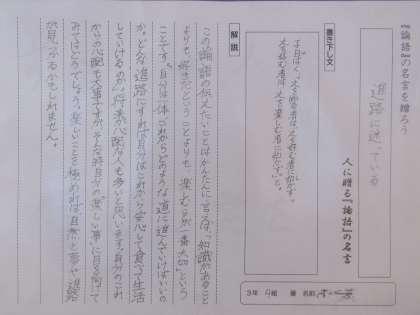 『論語』の名言を贈ろう
進路に迷っている
人に贈る『論語』の名言
書き下し文
子曰はく、之を知る者は、之を好む者に如かず。
之を好む者は、之を楽しむ者に如かず。と。
3年 組 番 名前
解説
この論語の伝えたいことはかんたんに言えば、「知識があること
よりも、好きだということよりも、楽しむのが一番大切」という
ことです。自分は一体これからどのような道に進んでいけばいいの
か。どんな進路にすれば自分はこれから安心して食べて生活
していけるのか。将来心配な人も多いと思います。自分のこれ
からの心配も大事ですが、そんな時自分の「楽しい事」に目を向けて
みてはどうでしょう。楽しいことを極めれば、自然と夢や進路
が見つかるかもしれません。